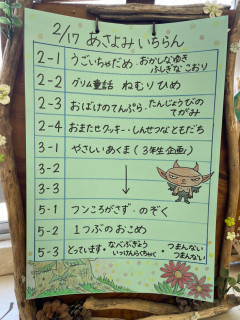 2/17 あさよみ いちらん
2-1 うごいちゃだめ・おかしなゆき
ふしぎなこおり
2-2 グリム童話 ねむりひめ
2-3 おばけのてんぷら・たんじょうびの
てがみ
2-4 おまたせクッキー・しんせつなともだち
3-1 やさしいあくま (3年生企画!)
3-2
3-3 ↓
5-1 フンころがさず・のぞく
5-2 1つぶのおこめ
5-3 とっています・なべぶぎょう
いっけんらくちゃく・つまんない
つまんない